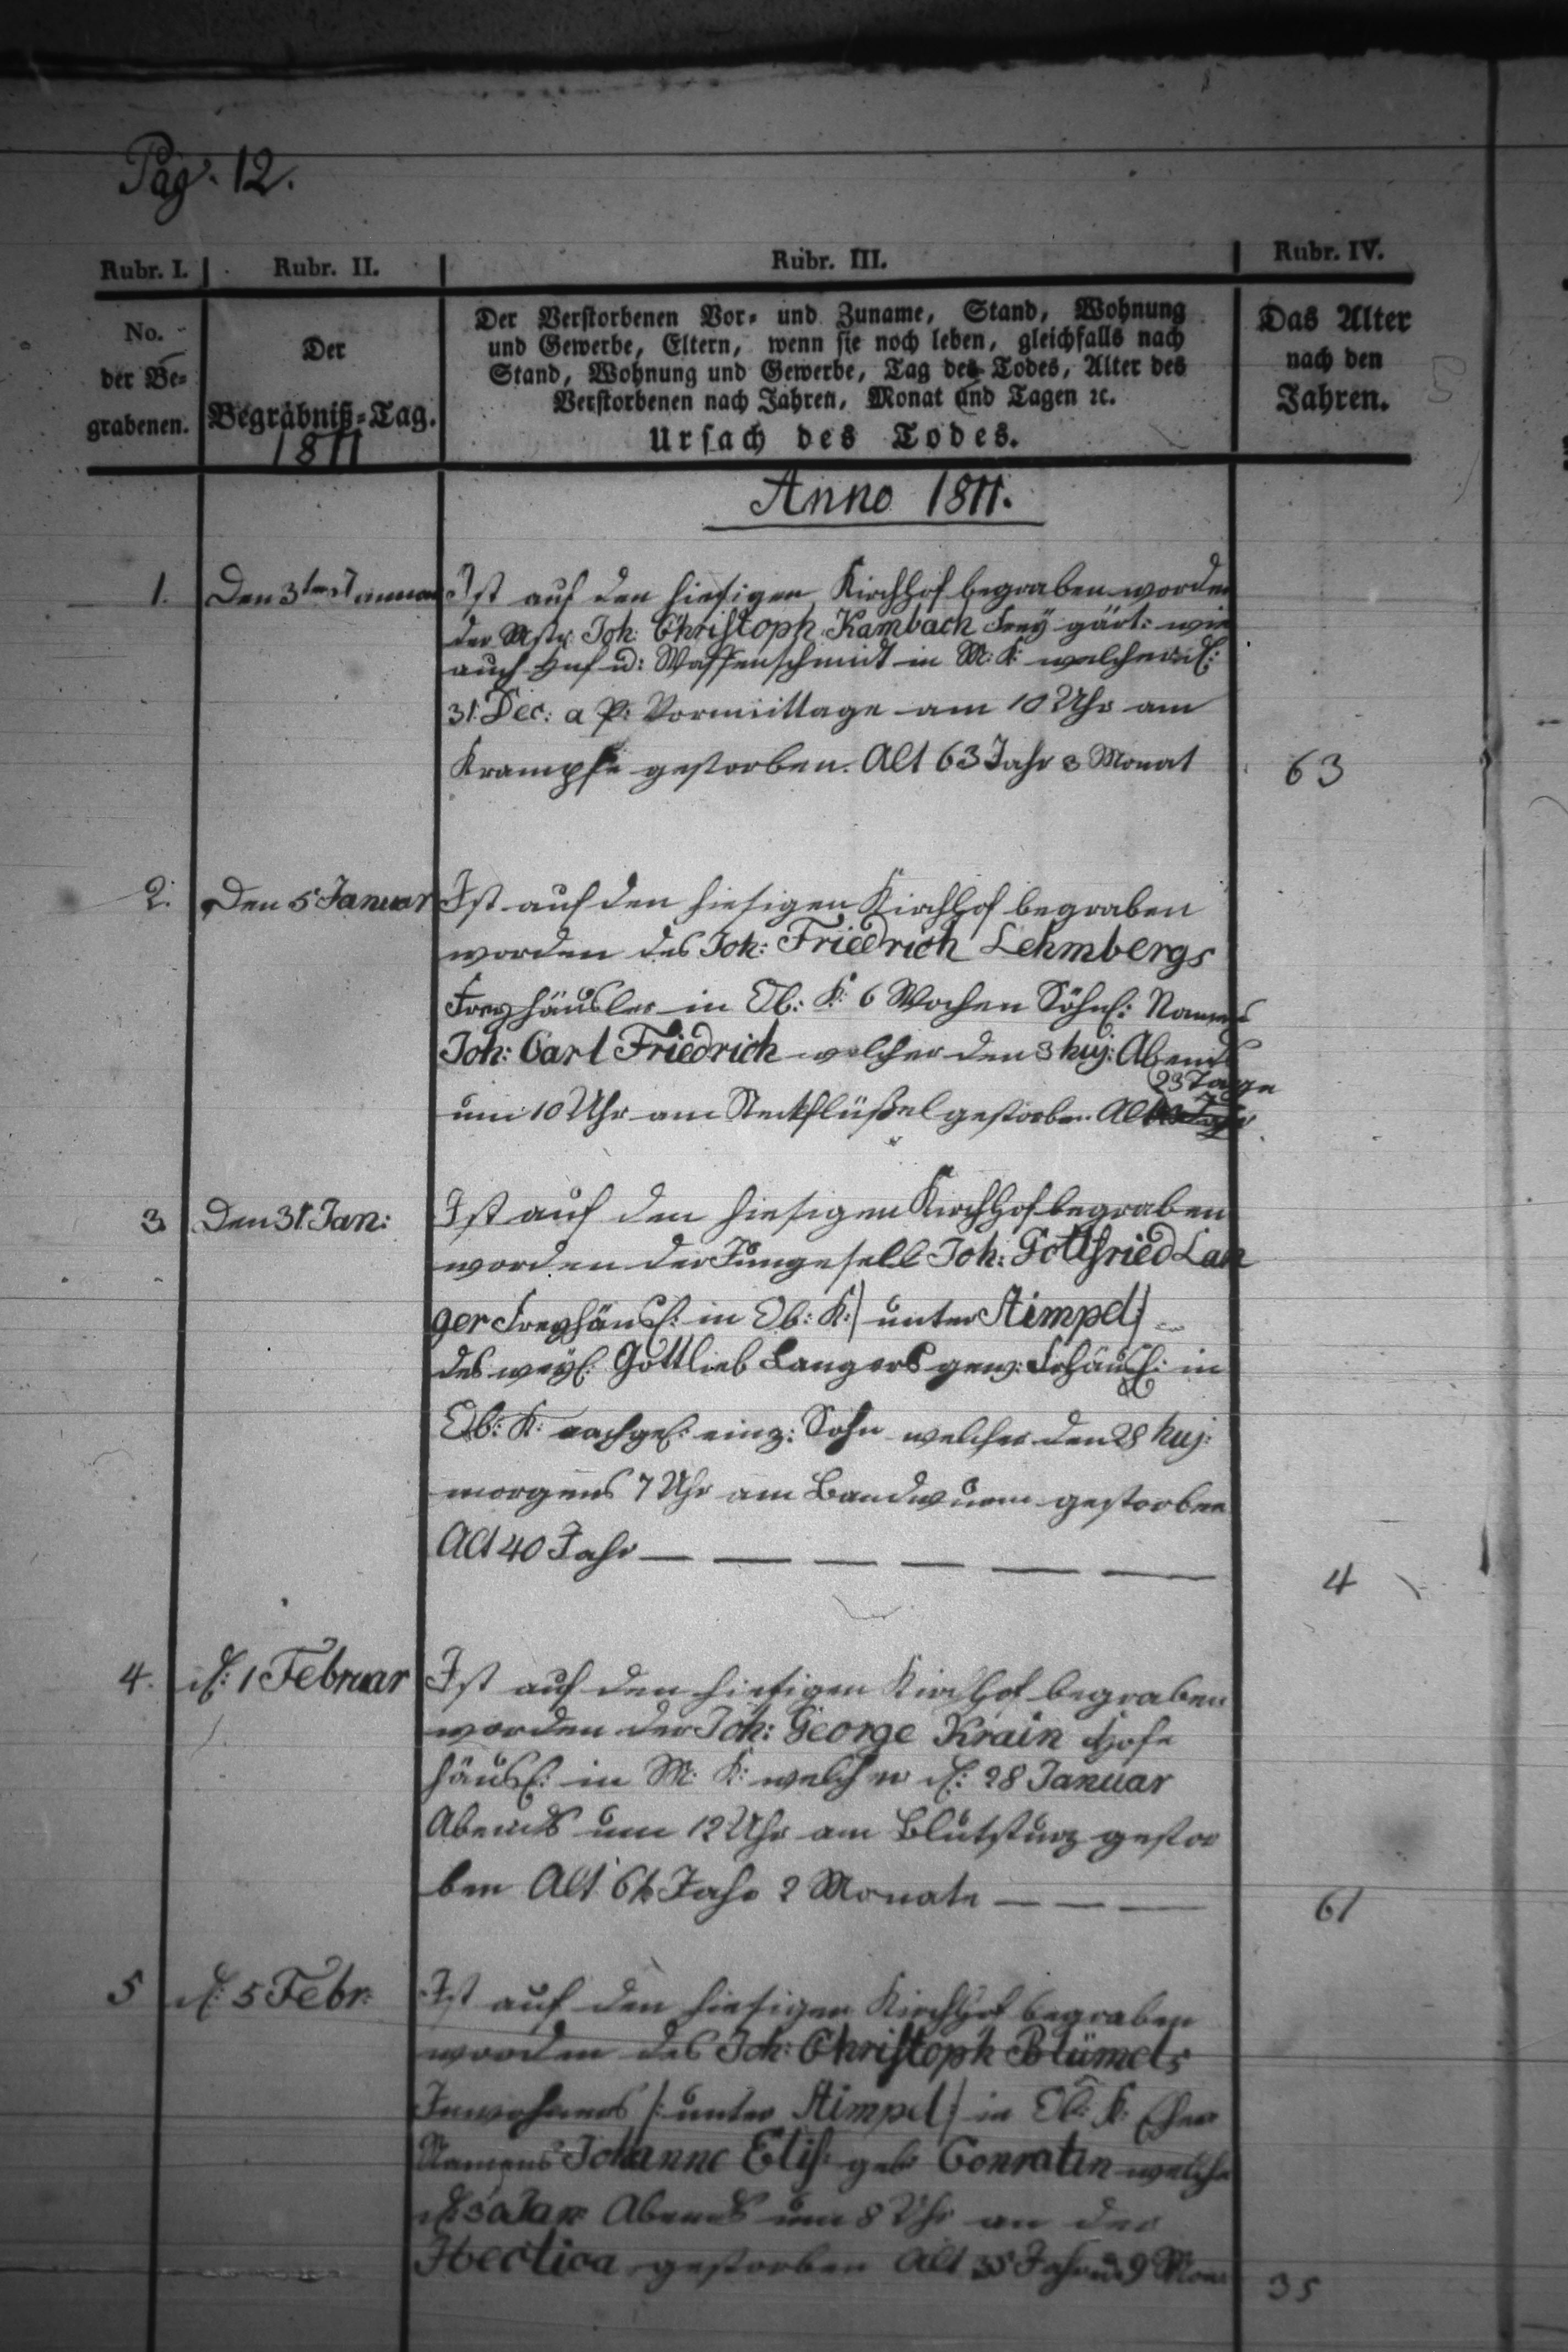 Pag. 12.
Rubr. I. Rubr. II. Rubr. III. Rubr. IV.
No. der Be- grabenen.
Der Begräbniß-Tag. 1811
Der Verstorbenen Vor- und Zuname, Stand, Wohnung
und Gewerbe, Eltern, wenn sie noch leben, gleichfalls nach
Stand, Wohnung und Gewerbe, Tag des Todes, Alter des
Verstorbenen nach Jahren, Monat und Tagen ꝛc.
Ursach des Todes.
Das Alter
nach den
Jahren.
Anno 1811.
1. Den 3ten Januar Ist auf den hiesigen Kirchhof begraben worden
der Mstr. Joh: Christoph Kambach Frey gärt: wie
auch Huf u: Waffenschmidt in M: K: welcher d:
31. Dec: a p: Vormittage am 10 Uhr am
Krampfe gestorben. Alt 63 Jahr 3 Monat 63
2. Den 5 Januar Ist auf den hiesigen Kirchhof begraben
worden des Joh: Friedrich Lehmbergs
Freyhäusler in Ob: K: 6 Wochen Söhnl: Namens
Joh: Carl Friedrich welcher den 3 huj: Abends
23 Tage
um 10 Uhr am Steckflüßel gestorben Alt
3 Den 31. Jan: Ist auf den hiesigen Kirchhof begraben
worden der Jungesell Joh: Gottfried Lan
ger Freyhäusl: in Ob: K: unter Aimpel
des weyl: Gottlieb Langers gew: Frhäusl: in
Ob: K: nachgel: einz: Sohn welcher den 28 huj:
morgens 7 Uhr am Bandwurm gestorben
Alt 40 Jahr 4
4. d: 1 Februar Ist auf den hiesigen Kirchhof begraben
worden der Joh: George Krain Hofe
häusl: in M: K: welcher d: 28 Januar
Abends um 12 Uhr am Blutsturz gestor
ben Alt 61 Jahr 2 Monate 61
5 d: 5 Febr: Ist auf den hiesigen Kirchhof begraben
worden des Joh: Christoph Blümels
Inwohners /: unter Aimpel :/ in Ob: K:
Namens Johanne Elis: geb: Conratin welche
d: 30 Jan: Abends um 8 Uhr an der
Hectica gestorben Alt 35 Jahr u: 9 Mon: 35